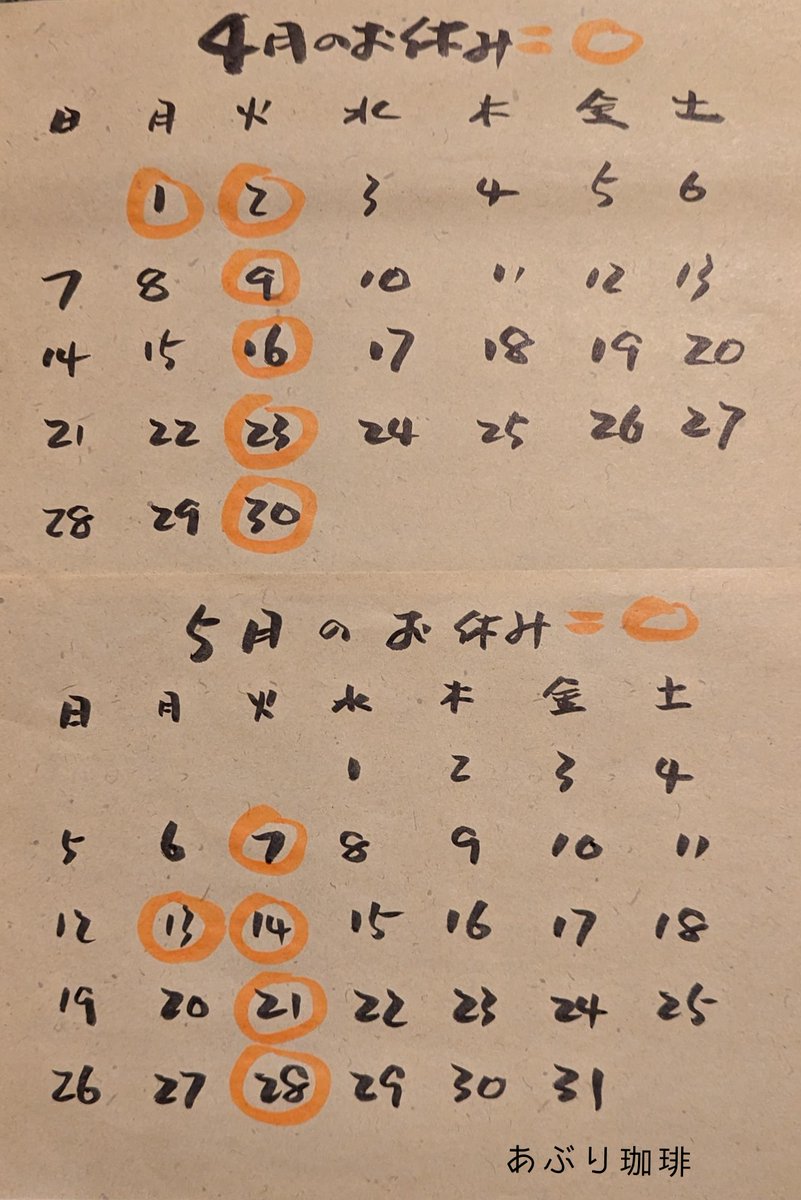 4月のお休み=○
日 月 火 水 木 金 土
1 2 3 4 5 6
7 8 9 10 11 12 13
14 15 16 17 18 19 20
21 22 23 24 25 26 27
28 29 30
5月のお休み=○
日 月 火 水 木 金 土
1 2 3 4
5 6 7 8 9 10 11
12 13 14 15 16 17 18
19 20 21 22 23 24 25
26 27 28 29 30 31
あぶり珈琲